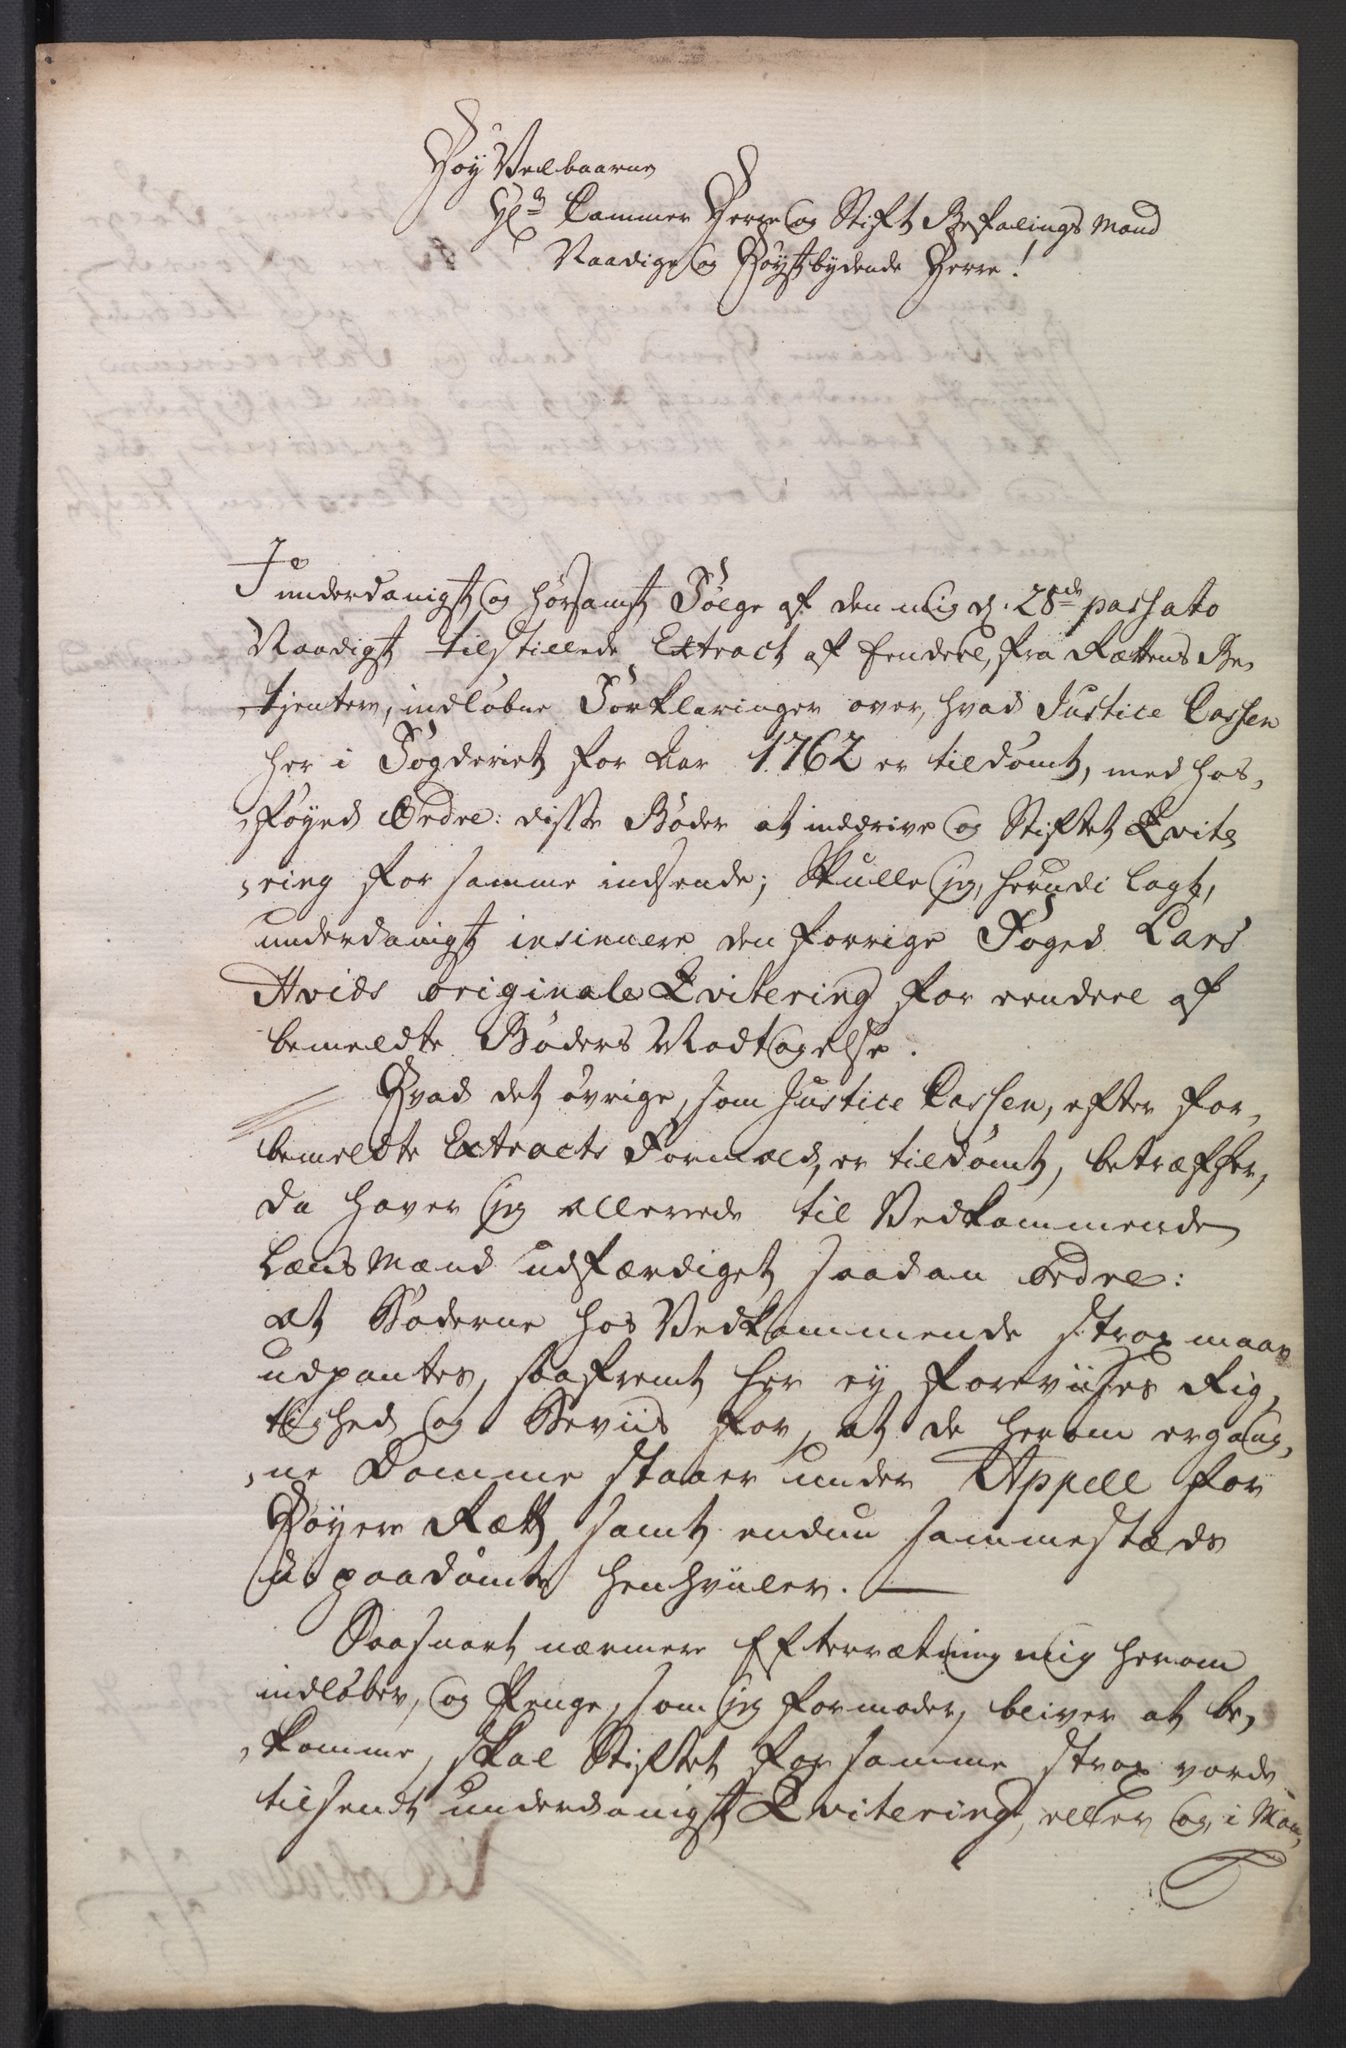 Høy Velbaarne
Hr. Cammer Herre og Stift Befalings Mand
Naadige og Høystbydende Herre!
I underdanigst og hørsamst Følge af den mig d. 28de passato
Naadigst tilstillede Extract af endeel, fra Rættens Be,
,tjentere, indløbne Forklaringer over, hvad Justice Cassen
her i Fogderiet for Aar 1762 er tildømt, med hos,
,føyed Ordre: disse Bøder at inddrive og Stiftet Qvite
,ring for samme indsende; Skulle jeg, herudi lagt,
underdanigst insinuere den forrige Foged Lars
Hvids originale Qvitering for eendeel af
bemeldte Bøders Modtagelse.
Hvad det øvrige, som Justice Cassen, efter for,
bemeldte Extracts Formeld, er tildømt, betræffer,
da haver jeg allerede til Vedkommende
Lænsmænd udfærdiget saadan Ordre:
at Bøderne hos Vedkommende strax maae
udpantes, saafremt her ey foreviises Rig,
tighed og Beviis for, at de herom ergang,
,ne Domme staaer under Appell for
Høyere Rætt, samt endnu sammestæds
u-paadømte henhviiler.
Saasnart nærmere Efterrætning mig herom
indløber, og Penge, som jeg formoder, bliver at be,
,komme, skal Stiftet for samme strax vorde
tilsendt underdanigst Qvitering, eller og, i Man,